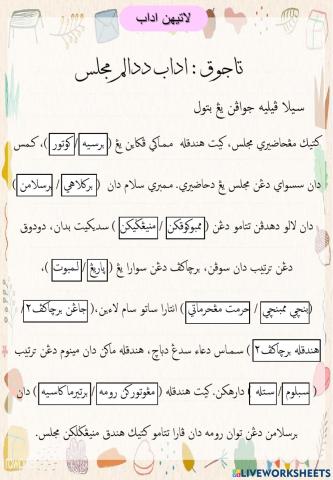 لاتيهن اداب
تاجوق : اداب ددالم مجليس
سيلا ڤيليه جواڤن يڠ بتول
كتيك مڠحاضيري مجليس، كيت هندقله مماكي ڤكاين يڠ ( برسيه / كوتور )، كمس
دان سسواي دڠن مجليس يڠ دحاضيري. ممبري سلام دان ( بركلاهي / برسلامن )
دان لالو دهدڤن تتامو دڠن ( ممبوڠكوقكن / منيڠݢيكن ) سديكيت بدان، دودوق
دڠن ترتيب دان سوڤن، برچاكڤ دڠن سوارا يڠ ( ڽاريڠ / لمبوت )،
( بنچي ممبنچي / حرمت مڠحرماتي ) انتارا ساتو سام لاٴين، ( جاڠن برچاكڤ٢ /
هندقله برچاكڤ٢ ) سماس دعاء سدڠ دباچ، هندقله ماكن دان مينوم دڠن ترتيب
( سبلوم / ستله ) دارهكن. كيت هندقله ( مڠوتوركن رومه / برتريما كاسيه ) دان
برسلامن دڠن توان رومه دان ڤارا تتامو كتيك هندق منيڠݢلكن مجليس.
LIVEWORKSHEETS